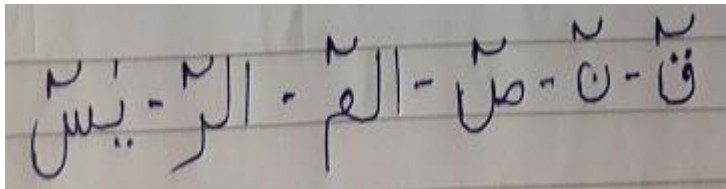 قٓ - نٓ - صٓ - الٓمٓ - الٓرٓ - يٰسٓ